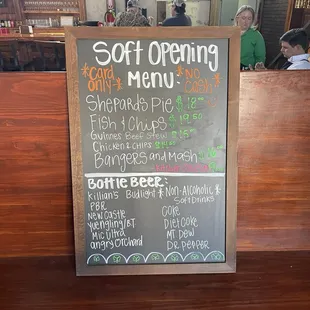 Soft Opening
Menu
*Card only*
*No Cash*
Shepards Pie $18
Fish & Chips $19.50
Guinnes Beef Stew $15
Chicken & Chips
Bangers and Mash
Bottle Beer:
Killian's Budlight
PBR
New Castle
Yuengling/BT
Mic Ultra
angry Orchard
*Non-Alcoholic*
Soft Drinks
Coke
Diet Coke
MT Dew
Dr. Pepper